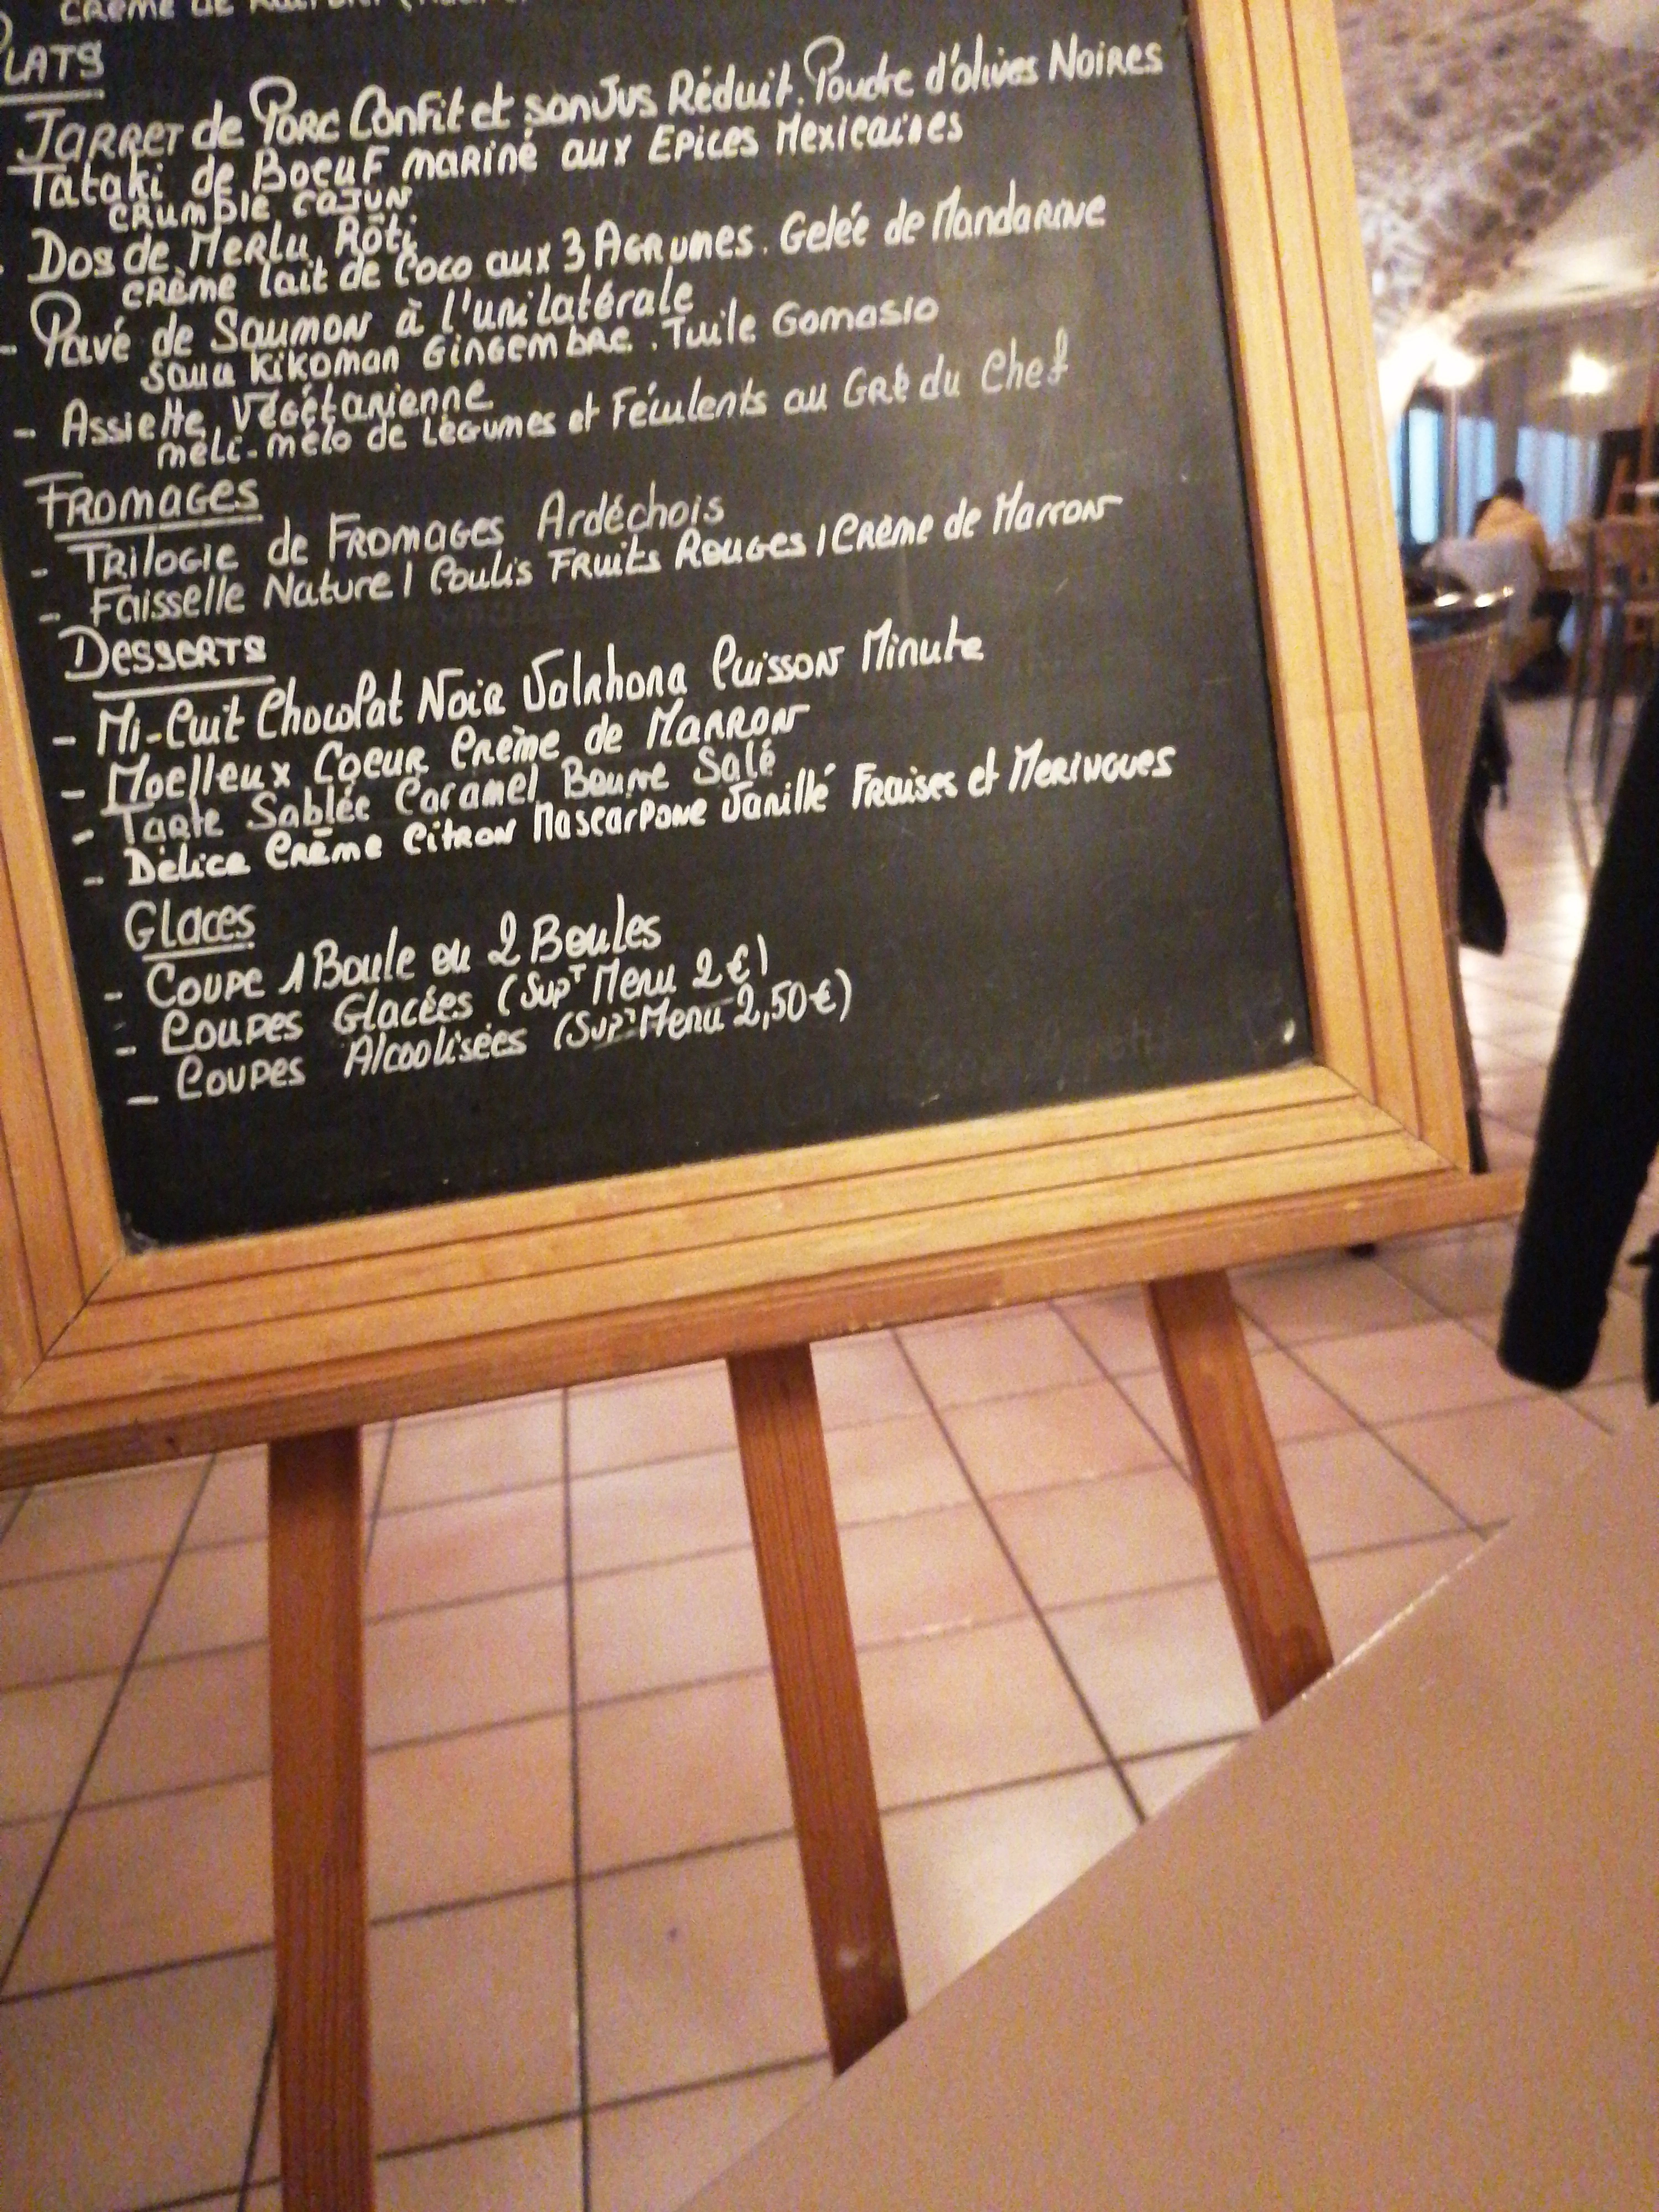 CRÈME DE
PLATS
JARRET de PORC Confit et son Jus Réduit. Poudre d'olives NOIRES
Tataki de BOEUF mariné aux EPICES MEXICAINES
CRUMBLE CAJUN
Dos de MERLU Rôti
CRÈME lait de Coco aux 3 AGRUMES. Gelée de Mandarine
- Pavé de SAUMON à l'unilatérale
KiKOMAN GINGEMBRE. Tuile Gomasio
- Assiette Végétarienne
méli-mélo de Légumes et Féculents au Gré du Chef
FROMAGES
- TRILOGIE de FROMAGES Ardéchois
- Faisselle Nature / Coulis FRUITS ROUGES / CRÈME de Marron
Desserts
- Mi-Cuit Chocolat Noir Valrhona Cuisson Minute
- Moelleux Coeur Crème de MARRON
- Tarte Sablée Caramel Beurre Salé
- Délice Crème Citron Mascarpone Vanillé Fraises et MERINGUES
Glaces
- COUPE 1 Boule ou 2 Boules
- COUPES Glacées (Supt Menu 2€)
- COUPES Alcoolisées (Supt Menu 2,50€)